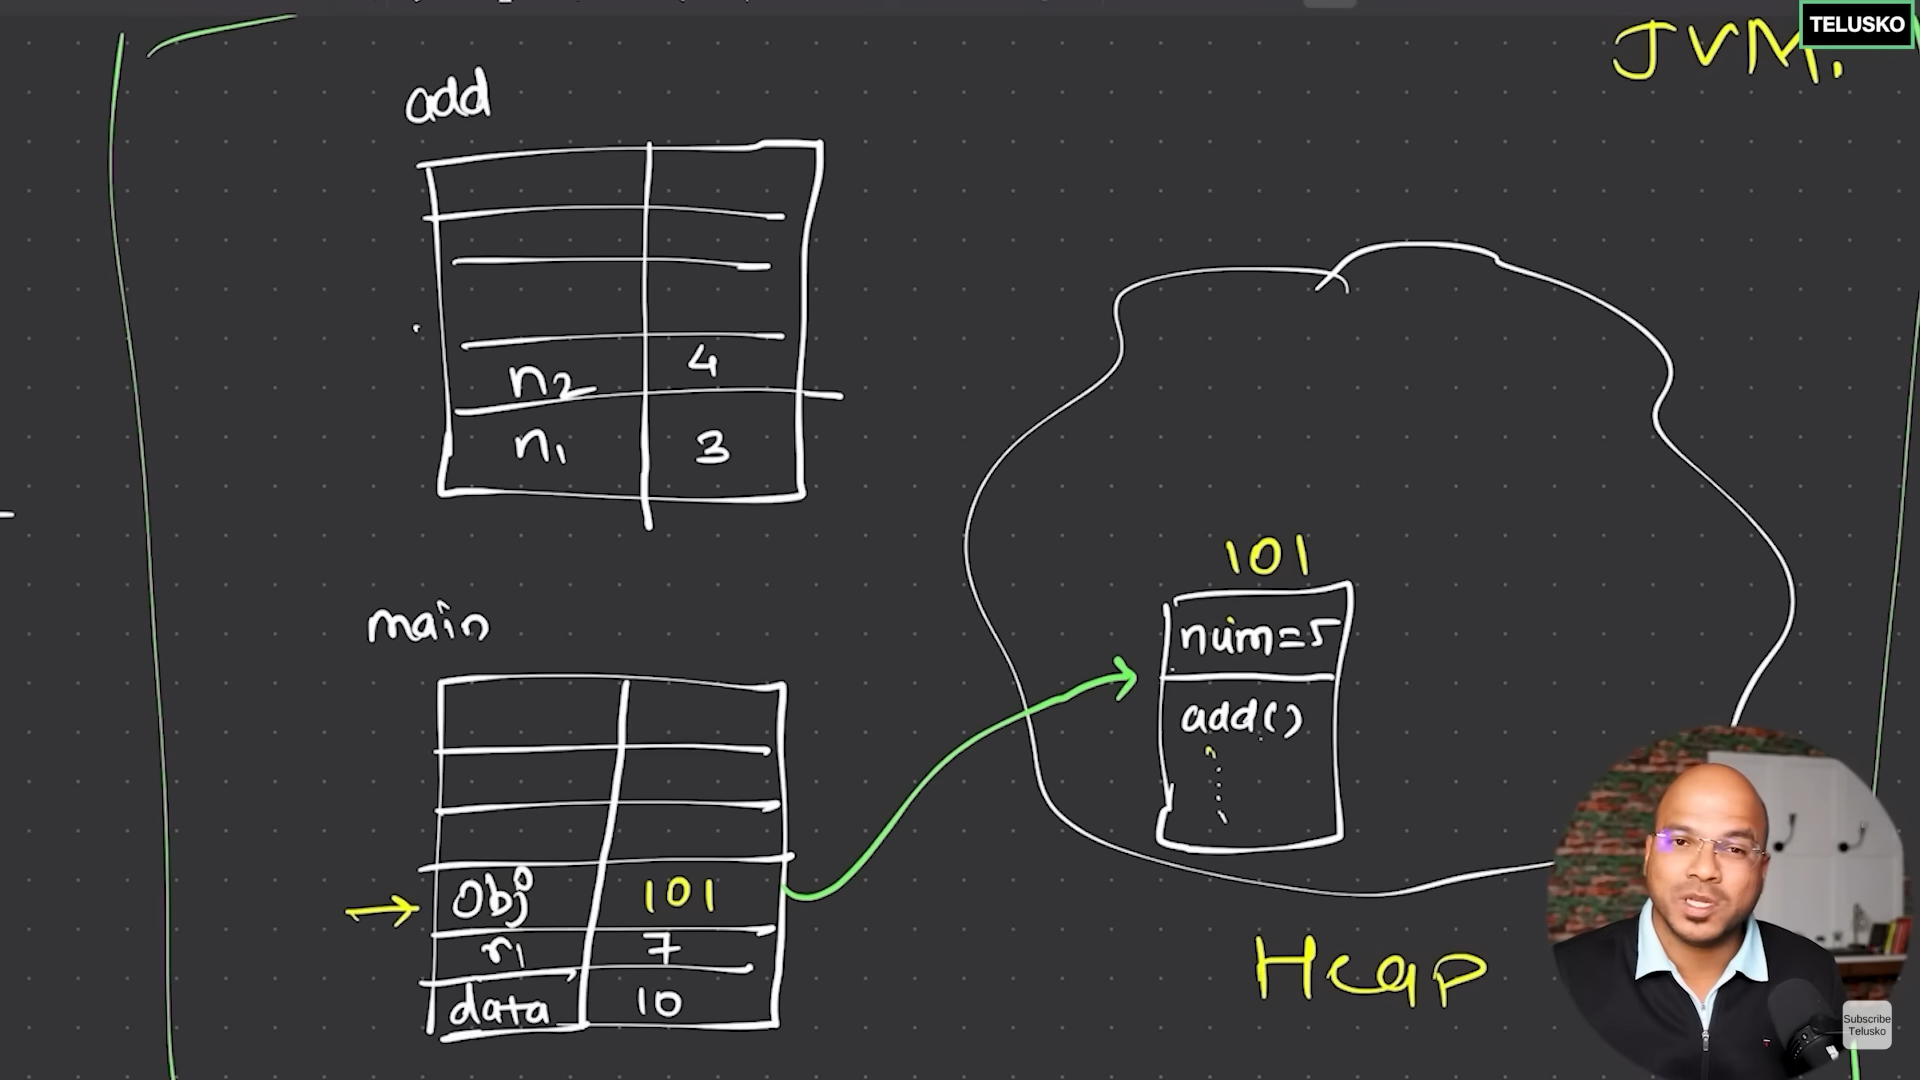 TELUSKO
JVM.
add
n2 4
n1 3
main
obj 101
r1 7
data 10
101
num=5
add()
Heap
Subscribe
Telusko